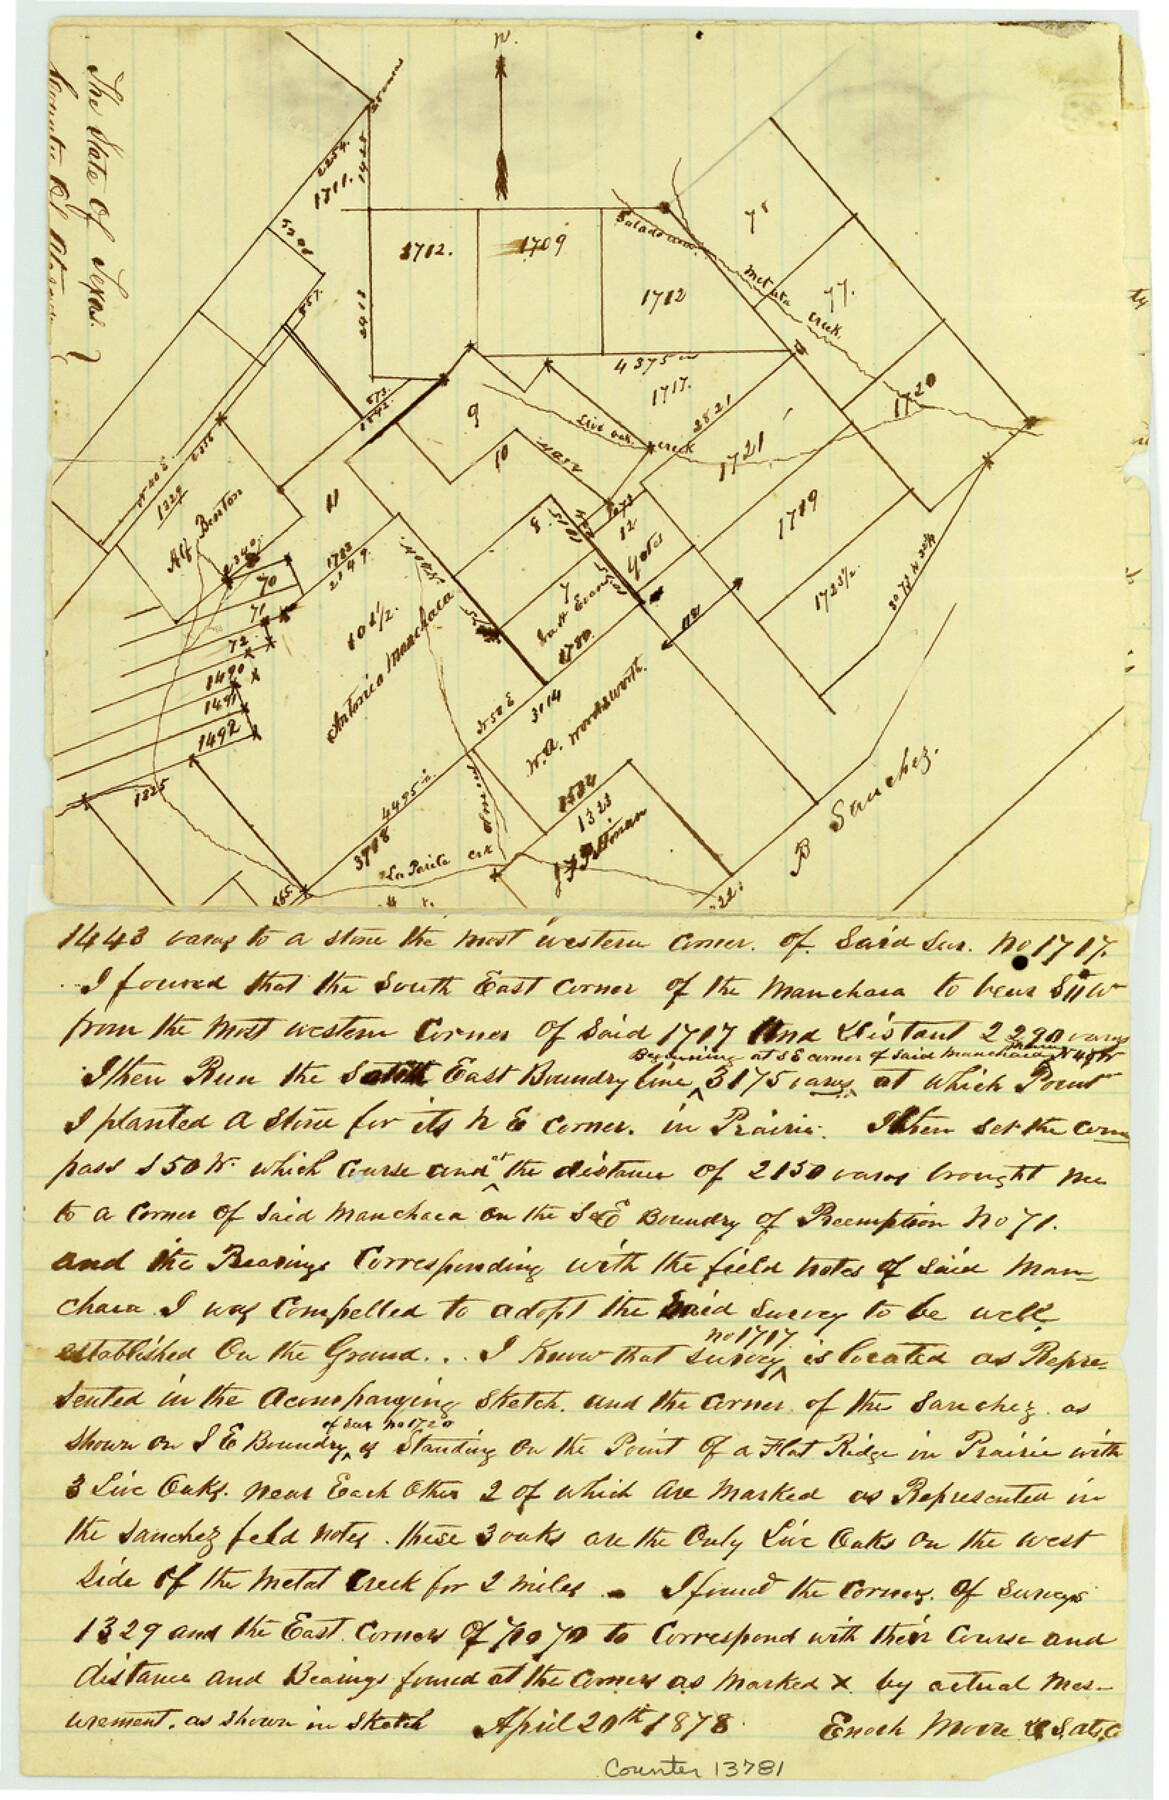 The State Of Texas. }
N.
2254.
1711.
1425
5200
557.
2413
1712.
1709
1712
Salado
Metate
Creek.
78
77.
1720
4375
1717.
2821
1721
Live oak Creek
573
1342
9
10
11
8
12
Yates
1719
1723½
N 40 E
1329
Alf Benton
70
71
72
1490
1491
1492
1325
1783
2149
101½.
Antonia Manchaca
7
1780
N 50 E
3114
W.A. Wordsworth.
4495
3718
La Parita Crk
1534
1323
J F Pittman
B Sanchez.
565
1443 varas to a stone the most western corner. of. Said Sur. No 1717.
I found that the South East Corner of the Manchaca to bear S 11° W
from the most western Corner Of Said 1717 And distant 2290 varas
Beginning at S E corner of Said Manchaca
I then Run the South East Boundry line 3175 varas at which Point
I planted A Stone for its N E corner. in Prairie. I then set the com
pass S 50 W. which course and at the distance of 2150 varas brought me
to a corner of Said Manchaca on the S E Boundry of Preemption No 71.
and the Bearings Corresponding with the field notes of Said Man-
chaca I was Compelled to adopt the Said Survey to be well
established On the Ground... I Know that no 1717 survey is located as Repre-
sented in the Acompanying Sketch. and the corner of the Sanchez as
of Sur no 1720
shown on S E Boundry is Standing On the Point Of a Flat Ridge in Prairie with
3 Live Oaks. near Each Other 2 of which are marked as Represented in
the Sanchez feld notes. these 3 oaks are the Only Live Oaks on the west
side of the Metat Creek for 2 miles - I found the Corners. Of Surveys
1329 and the East Corners Of No 70 to Correspond with their Course and
distance and Bearings found at the Corners as marked X by actual Mes-
urement. as shown in Sketch April 20th 1878. Enoch Moore
Counter 13781